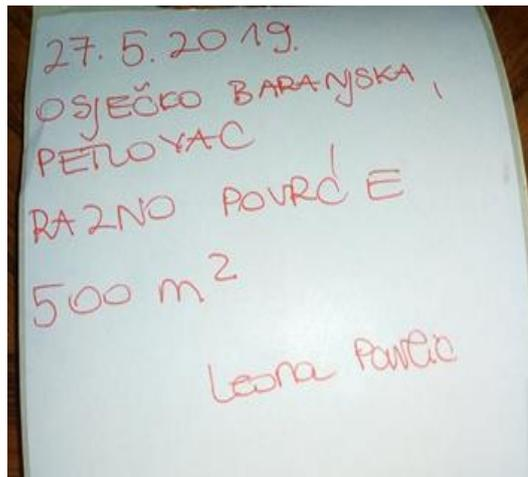 27. 5. 2019.
OSJEČKO BARANJSKA,
PETLOVAC
RAZNO POVRĆE
500 m²
Leona